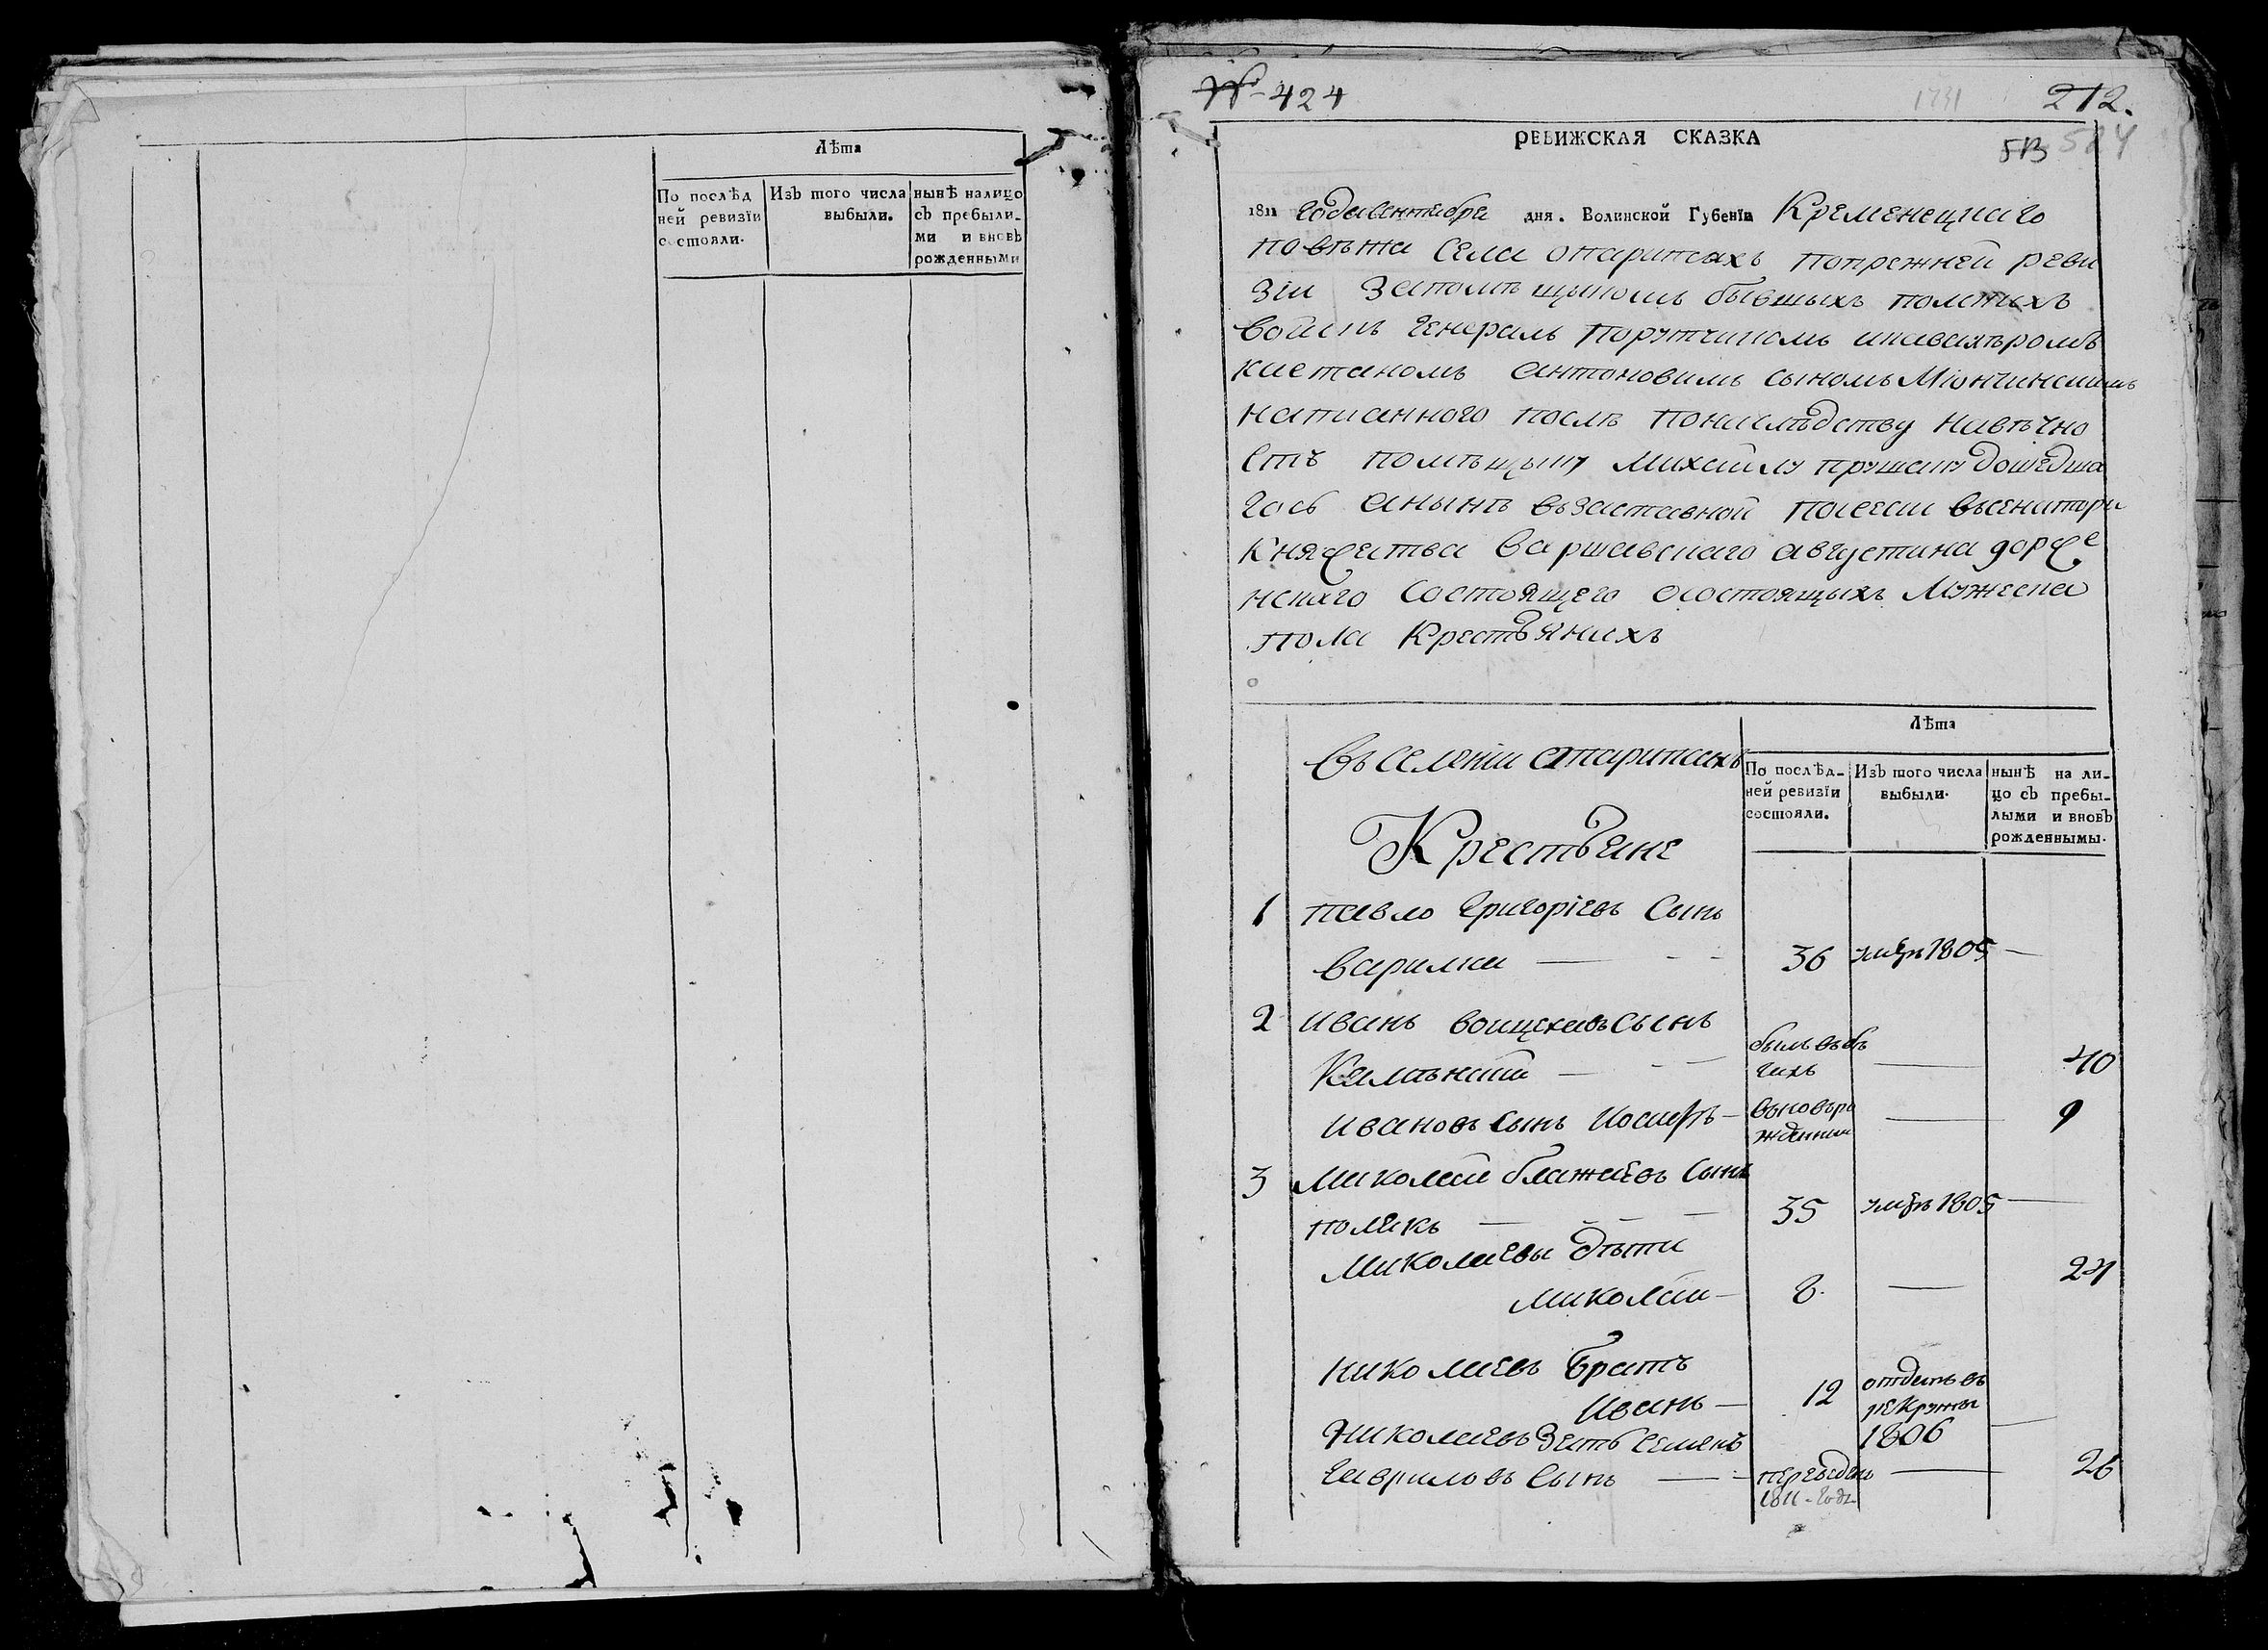 Лѣта
По послѣд
ней ревизїи
состояли.
Изъ того числа
выбыли.
нынѣ налицо
съ пребыли-
ми и вновь
рожденными
№ 424
212.
РЕВИЖСКАЯ СКАЗКА
513
584
1811 года Сентебра дня. Волинской Губенїи Кременецкаго
повѣта Села опарипсахъ попрежней реви
зіи Запомѣщикомъ бывшыхъ полскихъ
воискъ Генералъ Порутчикомъ икавалѣромъ
каетаномъ антоновимъ сыномъ Міончинскимъ
написанного послѣ понаслѣдству Навѣчно
сть помѣщику Михайлу прушаку дошедша
гось анынѣ въ заставной посесіи
Княжества Варшавскаго августина
нскаго состоящего осостоящыхъ Мужеска
пола Крестьянихъ
Лѣта
Въ Селеніи опарипсахъ
По послѣд-
ней ревизїи
состояли.
Изъ того числа
выбыли.
нынѣ на ли-
цо съ пребы-
лыми и вновь
рожденнымы.
Крестьяне
1 павло Григоріевъ Сынъ
Варилка — 36 умеръ 1805 —
2 иванъ воицеховъ Сынъ
былъ въ бѣ
гахъ — 40
ивановъ Сынъ Иосифъ — вновъро
жденний — 9
3 Миколай блажиевъ Сынъ
полякъ — 35 умеръ 1805 —
Миколаевы дѣти
миколай — 8. — 24
николаевъ братъ
Иванъ — 12 отданъ въ
рекруты
1806 —
Николаевъ Зять Семенъ
Гавриловъ Сынъ — переведенъ — 26
1811 - года